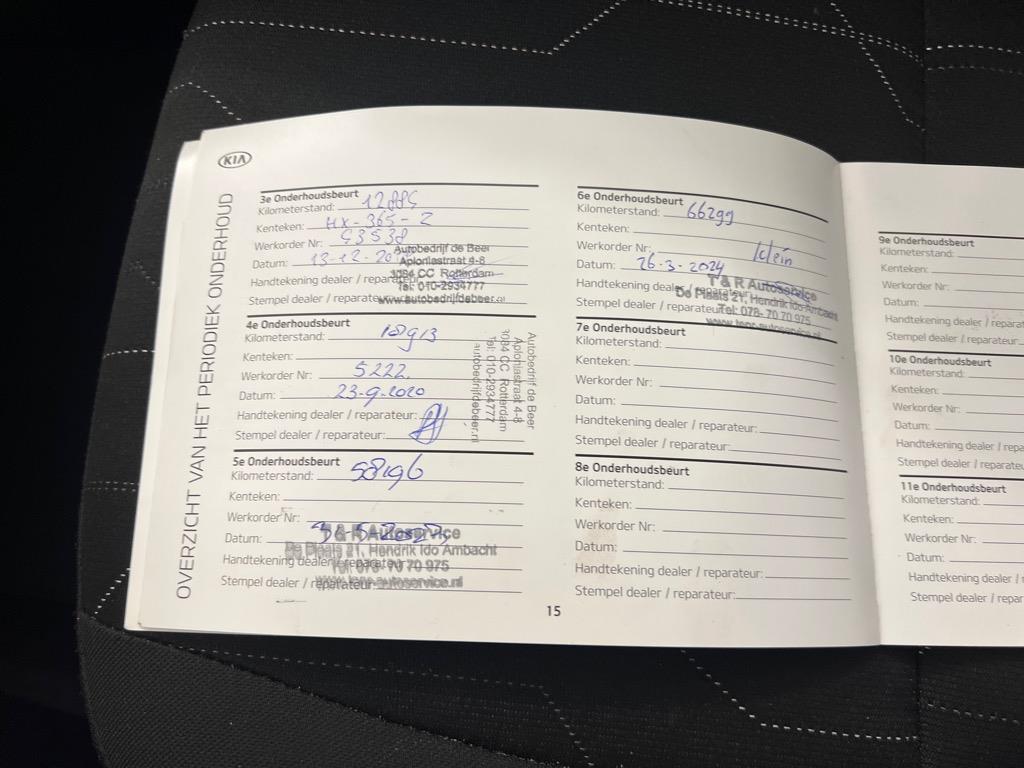 KIA
OVERZICHT VAN HET PERIODIEK ONDERHOUD
3e Onderhoudsbeurt
Kilometerstand: 12885
Kenteken: HX-365-Z
Werkorder Nr:
Datum: 13-12-20
Handtekening dealer / reparateur:
Stempel dealer / reparateur:
Autobedrijf de Beer
Aploniastraat 4-8
3084 CC Rotterdam
Tel: 010-2934777
www.autobedrijfdebeer.nl
4e Onderhoudsbeurt
Kilometerstand: 18913
Kenteken:
Werkorder Nr: 5222
Datum: 23-9-2020
Handtekening dealer / reparateur:
Stempel dealer / reparateur:
Autobedrijf de Beer
Aploniastraat 4-8
3084 CC Rotterdam
Tel: 010-2934777
autobedrijfdebeer.nl
5e Onderhoudsbeurt
Kilometerstand: 58196
Kenteken:
Werkorder Nr:
Datum:
Handtekening dealer / reparateur:
Stempel dealer / reparateur:
T & R Autoservice
De Plaats 21, Hendrik Ido Ambacht
Tel: 078- 70 70 975
6e Onderhoudsbeurt
Kilometerstand: 66299
Kenteken:
Werkorder Nr: klein
Datum: 26-3-2024
Handtekening dealer / reparateur:
Stempel dealer / reparateur:
T & R Autoservice
De Plaats 21, Hendrik Ido Ambacht
Tel: 078- 70 70 975
7e Onderhoudsbeurt
Kilometerstand:
Kenteken:
Werkorder Nr:
Datum:
Handtekening dealer / reparateur:
Stempel dealer / reparateur:
8e Onderhoudsbeurt
Kilometerstand:
Kenteken:
Werkorder Nr:
Datum:
Handtekening dealer / reparateur:
Stempel dealer / reparateur:
15
9e Onderhoudsbeurt
Kilometerstand:
Kenteken:
Werkorder Nr:
Datum:
Handtekening dealer / reparat
Stempel dealer / reparateur:
10e Onderhoudsbeurt
Kilometerstand:
Kenteken:
Werkorder Nr:
Datum:
Handtekening dealer / repara
Stempel dealer / reparateu
11e Onderhoudsbeurt
Kilometerstand:
Kenteken:
Werkorder Nr:
Datum:
Handtekening dealer / re
Stempel dealer / repar